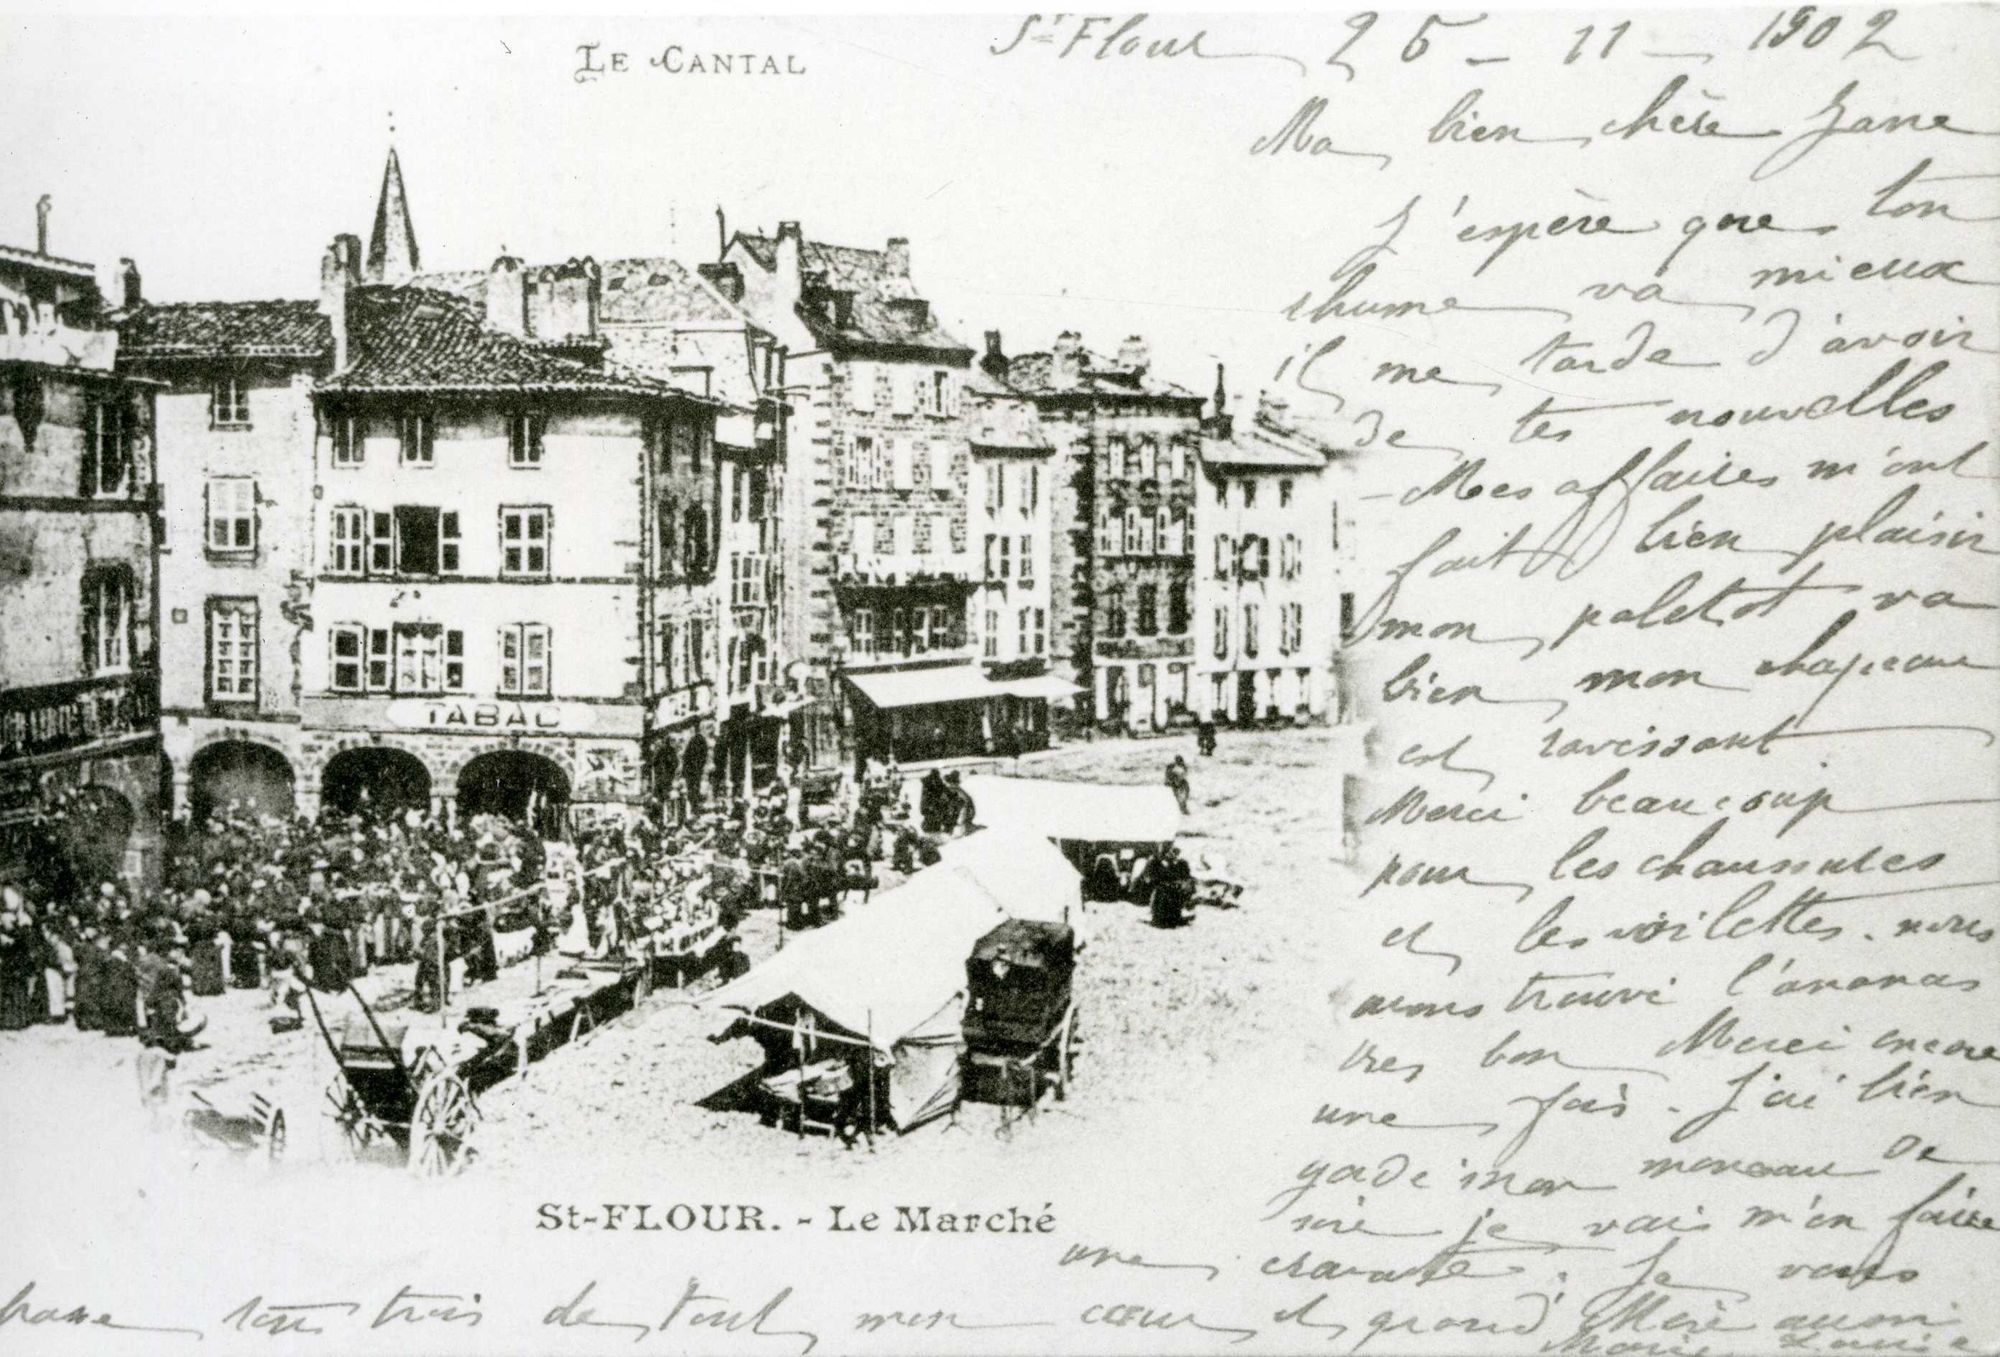 LE CANTAL
St Flour 25 - 11 - 1902
Ma bien chère Jane
J'espère que ton
rhume va mieux
il me tarde d'avoir
de tes nouvelles
- Mes affaires m'ont
fait bien plaisir
mon paletot va
bien mon chapeau
est ravissant
Merci beaucoup
pour les chaussures
et les voilettes. nous
avons trouvé l'ananas
tres bon Merci encore
une fois. J'ai bien
gardé mon morceau de
soie je vais m'en faire
une cravate. Je vous
tous trois de tout mon cœur et grand Mère aussi
Marie Louise
TABAC
St-FLOUR. - Le Marché